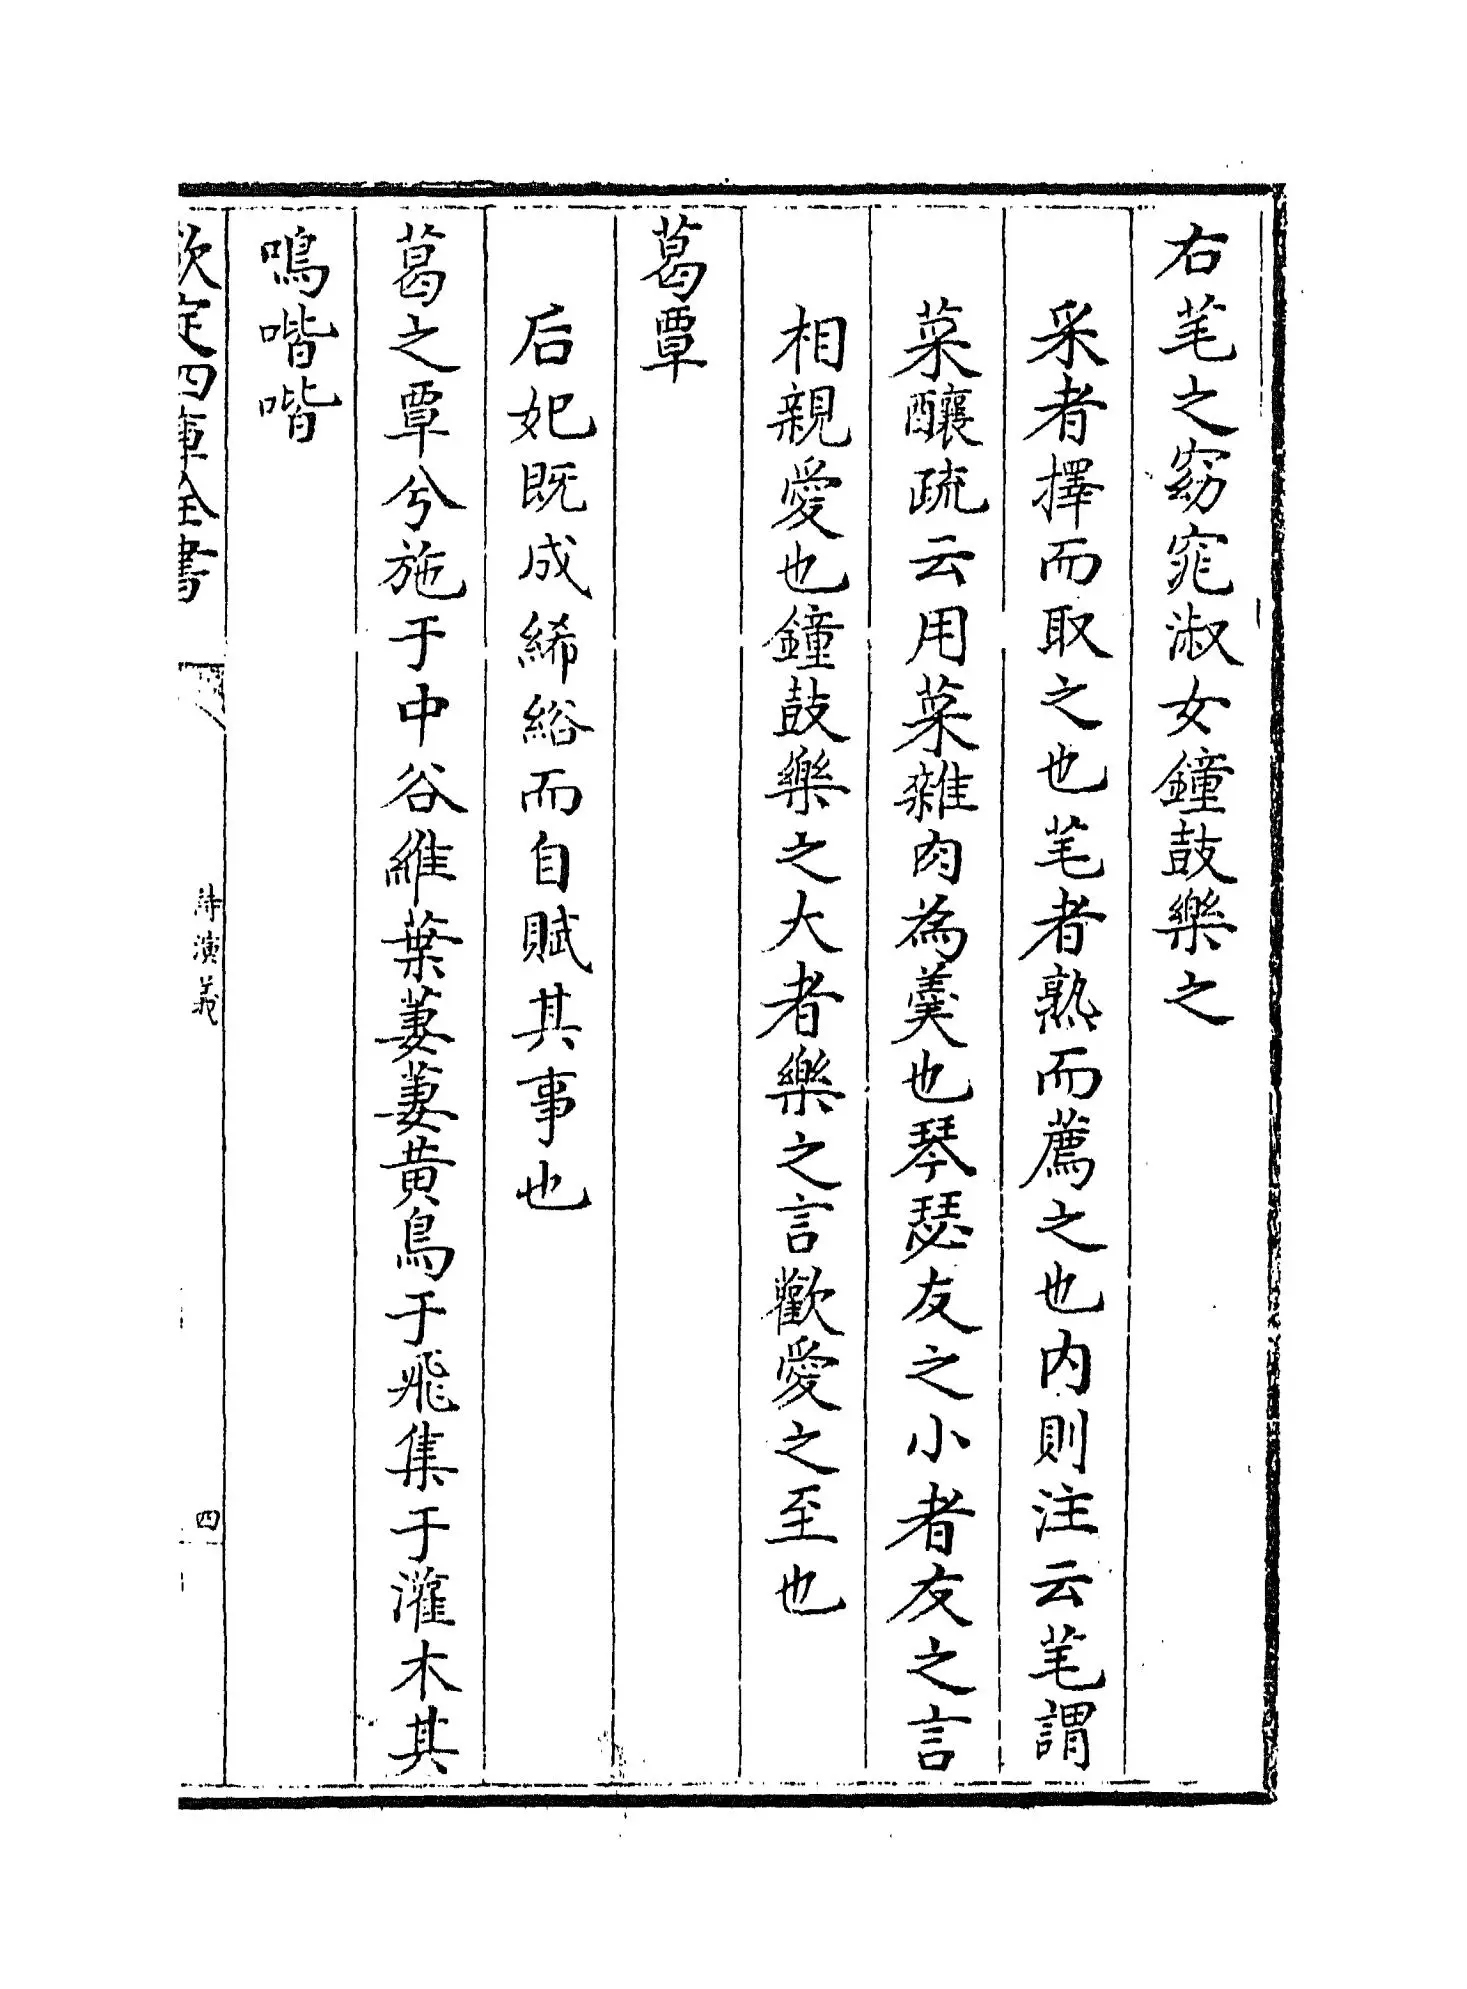 右芼之窈窕淑女鐘鼓樂之
采者擇而取之也芼者熟而薦之也内則注云芼謂
菜釀疏云用菜雜肉為羹也琴瑟友之小者友之言
相親愛也鐘鼓樂之大者樂之言歡愛之至也
葛覃
后妃既成絺綌而自賦其事也
葛之覃兮施于中谷維葉萋萋黄鳥于飛集于灌木其
鳴喈喈
欽定四庫全書
詩演義
四